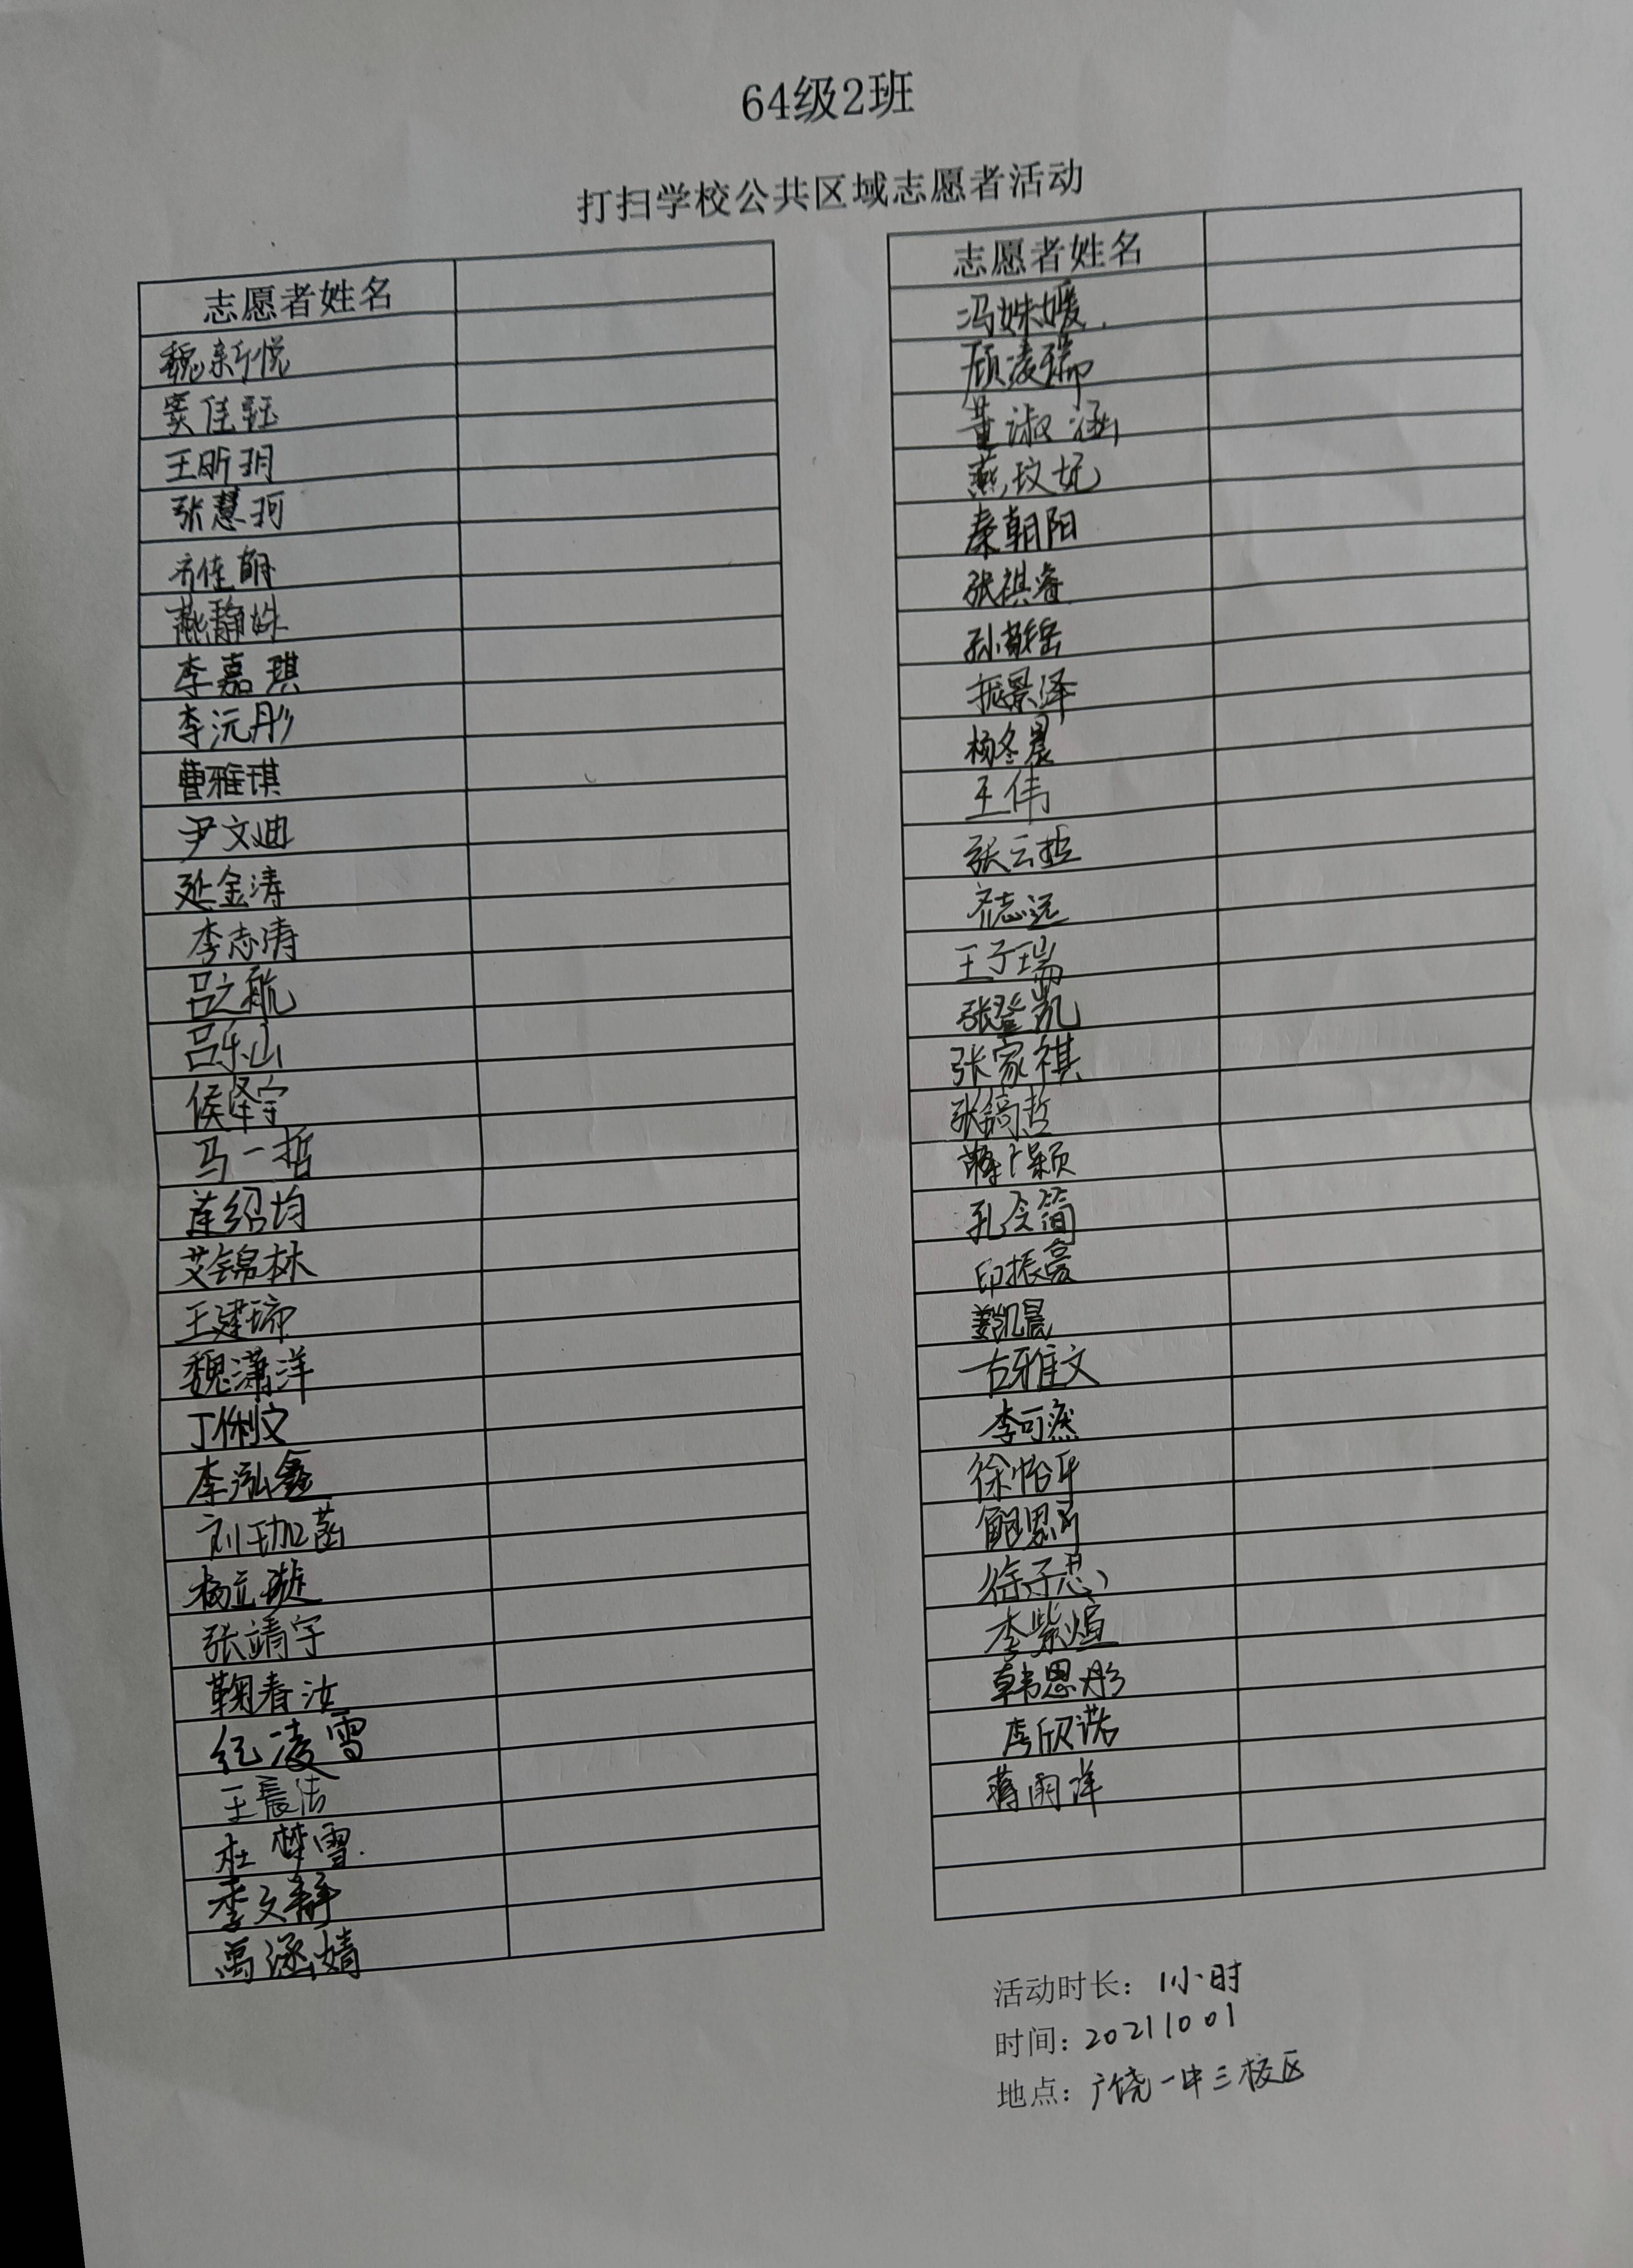 64级2班
打扫学校公共区域志愿者活动
志愿者姓名
魏新悦
窦佳钰
王昕玥
张慧珂
齐佳
燕静姝
李嘉琪
李沅彤
曹雅琪
尹文迪
延金涛
李志涛
吕之航
吕乐山
侯泽宇
马一哲
莲绍均
艾锦林
王建瑞
魏潇洋
丁俐文
李泓鑫
刘珈菡
杨立璇
张靖宇
鞠春汝
纪凌雪
王晨洁
杜梦雪
李文静
万涵婧
志愿者姓名
冯姝媛
顾凌瑞
董淑涵
燕玟妃
秦朝阳
张祺睿
孙敬岳
景泽
杨冬晨
王伟
张云哲
齐志远
王子瑞
张登凯
张家祺
张镐哲
蒋广颖
孔令简
印振亮
姜凯晨
古雅文
李可然
徐怡平
徐子思
李紫煊
韩恩彤
李欣诺
蒋雨洋
活动时长：1小时
时间：20211001
地点：广饶一中三校区